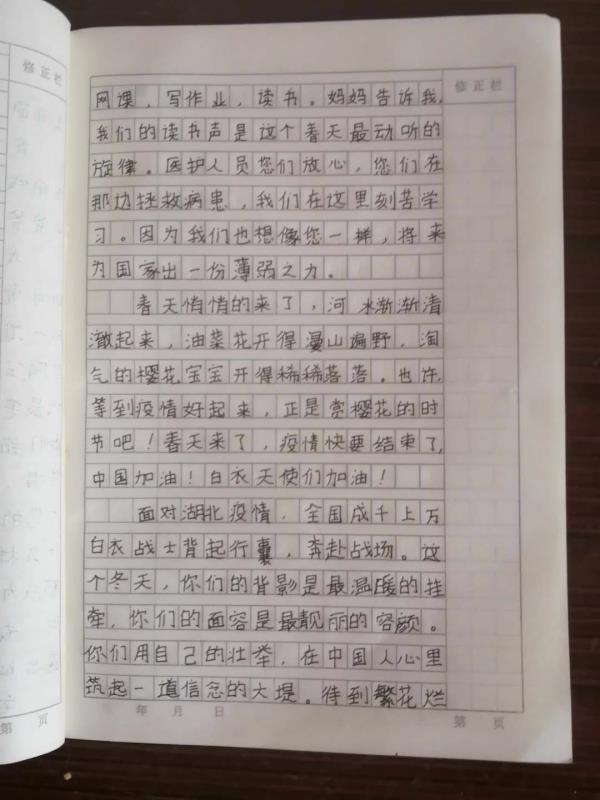 修正栏
修正栏
网课，写作业，读书。妈妈告诉我，
我们的读书声是这个春天最动听的
旋律。医护人员您们放心，您们在
那边拯救病患，我们在这里刻苦学
习。因为我们也想像您一样，将来
为国家出一份薄弱之力。
春天悄悄的来了，河水渐渐清
澈起来，油菜花开得漫山遍野，淘
气的樱花宝宝开得稀稀落落。也许
等到疫情好起来，正是赏樱花的时
节吧！春天来了，疫情快要结束了，
中国加油！白衣天使们加油！
面对湖北疫情，全国成千上万
白衣战士背起行囊，奔赴战场。这
个冬天，你们的背影是最温暖的挂
牵，你们的面容是最靓丽的容颜。
你们用自己的壮举，在中国人心里
筑起一道信念的大堤。待到繁花烂
第 页
年 月 日
第 页